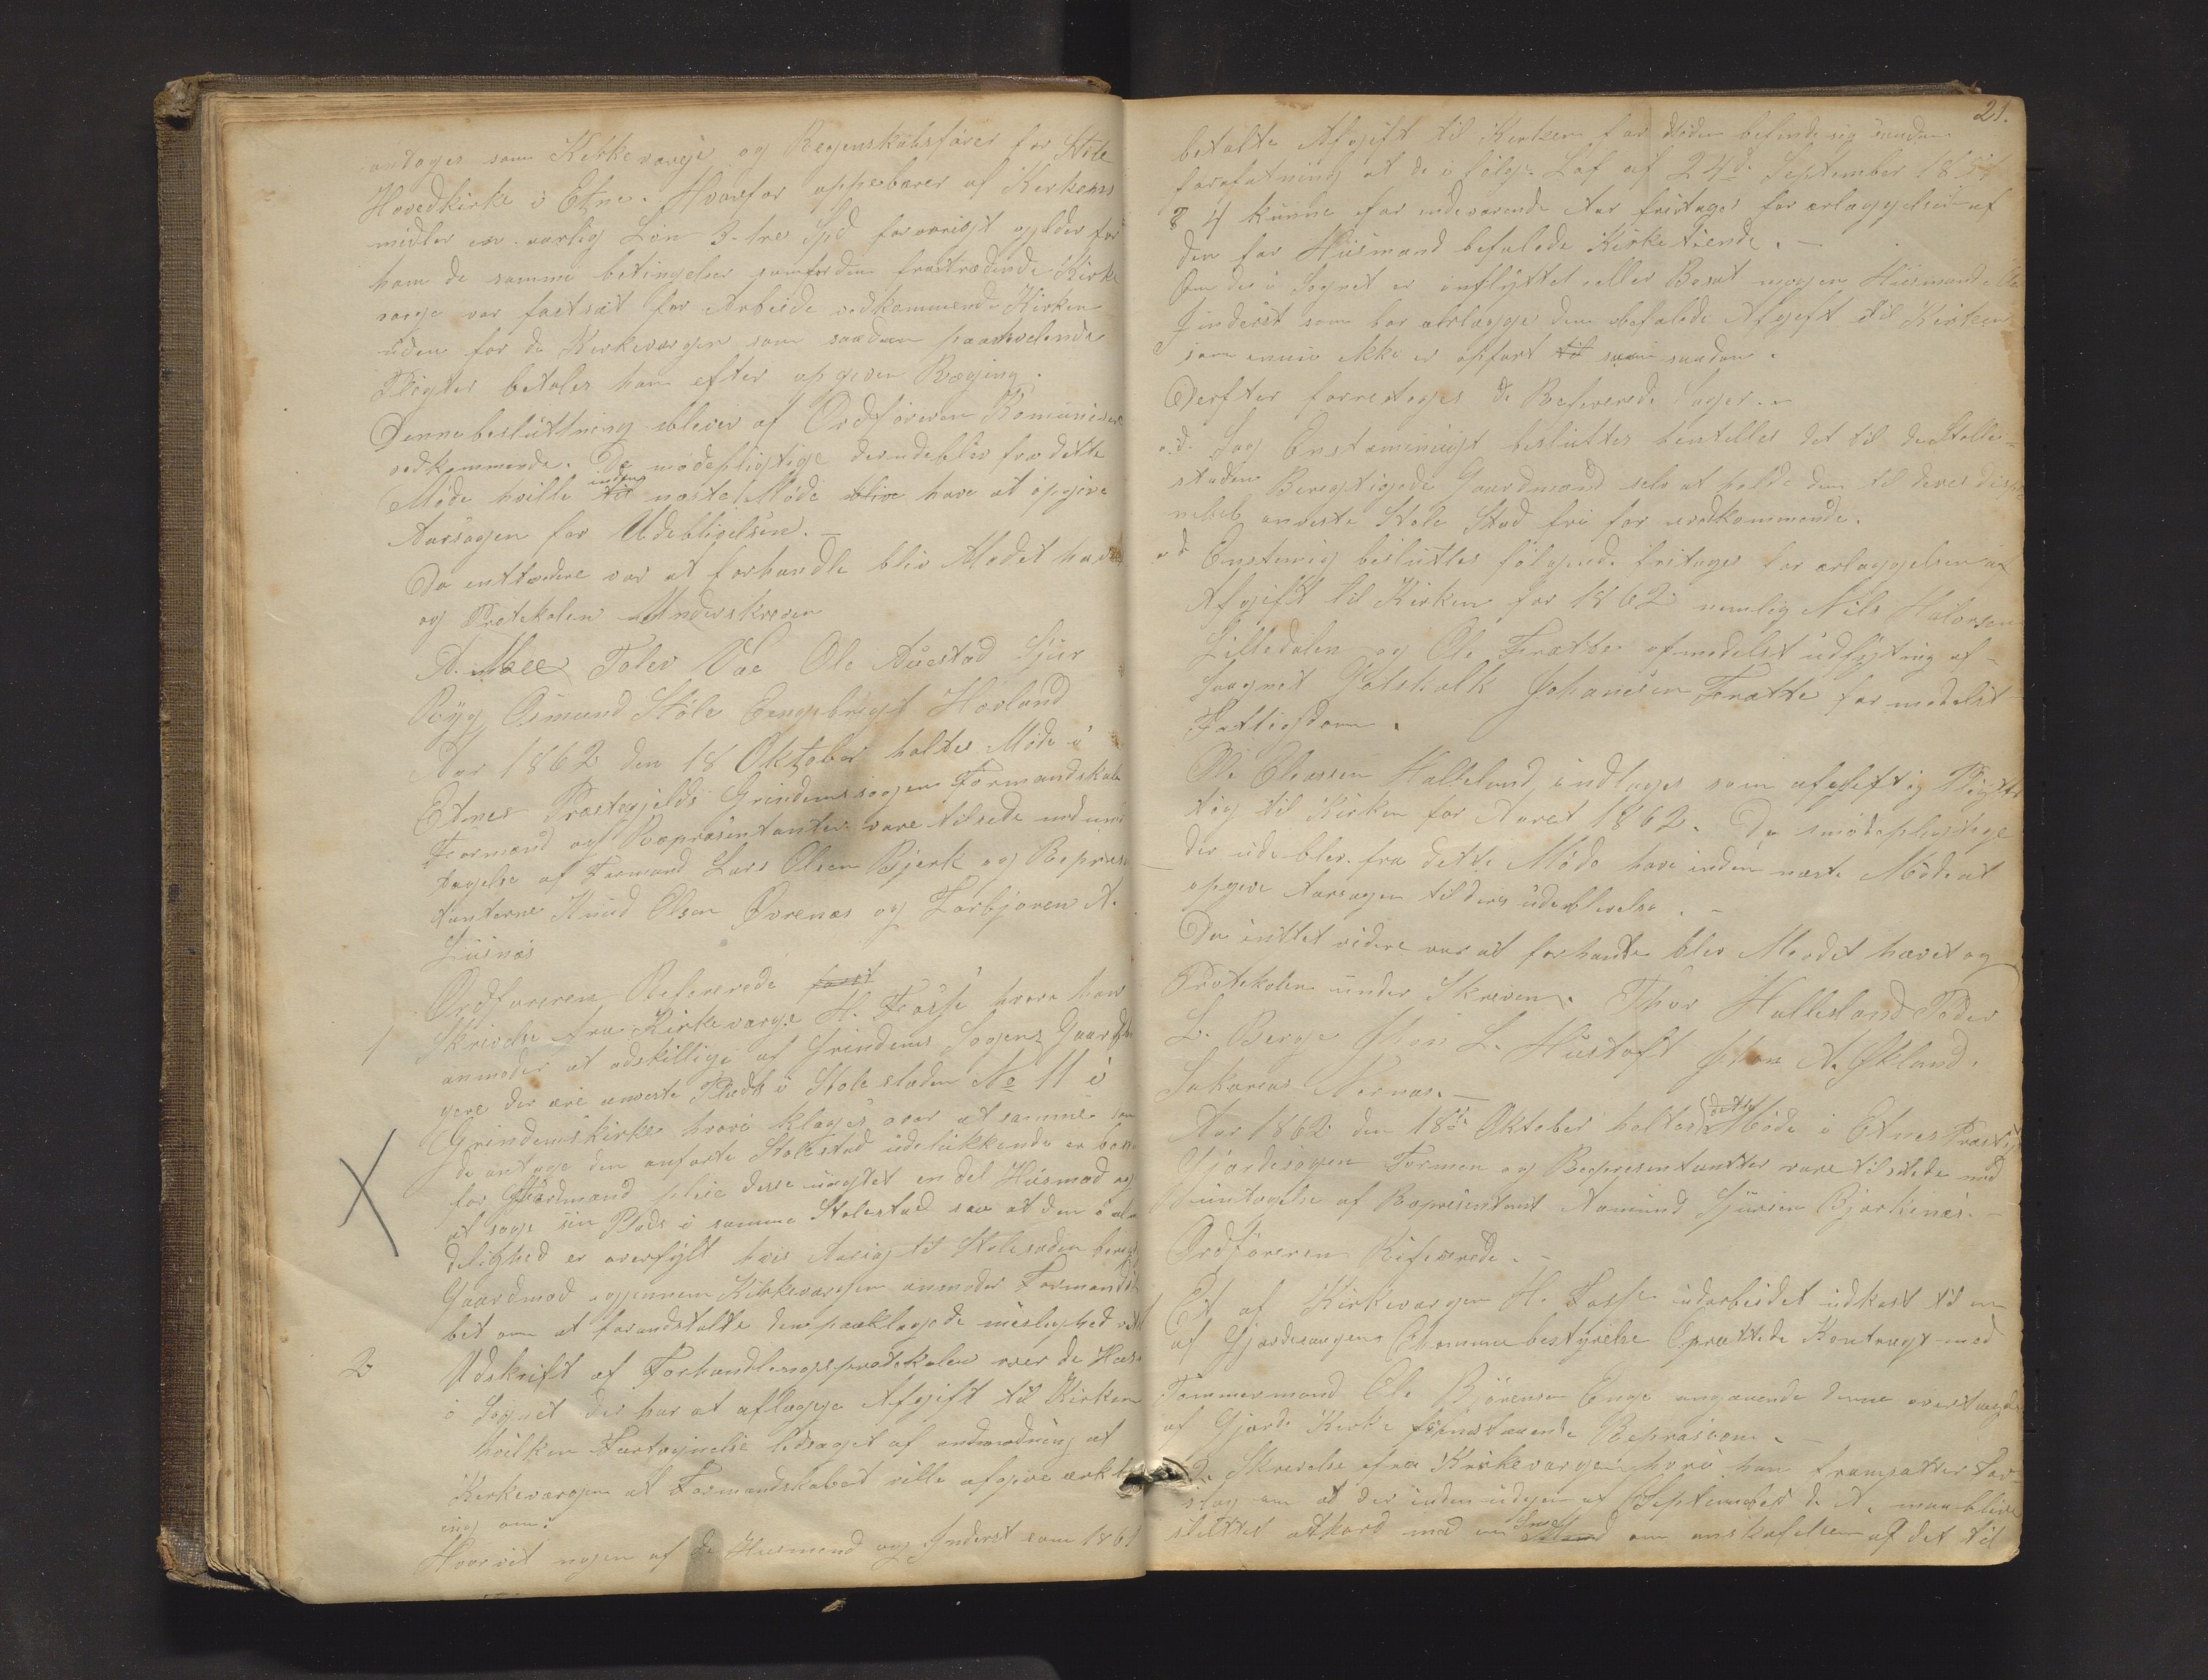 andages som Kirkeværge og Regenskabsfører for Støle
Hovedkirke i Etne. Hvorfor oppebærer af Kirkens
midler en aarlig Løn 3-tre Spd forøvrigt gjelder for
ham de samme betingelser som for den fratrædende Kirke
værge var fastsat for Arbeide vedkommende Kirken
uden for de Kirkeværgen som saadan paahvilende
Pligter betales ham efter opgiven Reging.
Denne beslutning blever af Ordføreren
vedkommende. De mødepligtige der udeblev fra dette
Møde hville inden næste Møde have at opgive
Aarsagen for Udeblivelsen. –
Da inttvidere var at forhandle blev Mødet hævet
og Protokolen Underskreven
A. Moe Tolev Vae Ole Austad Sjur
Ryg Osmund Støle Engebrigt Hovland
Aar 1862 den 18 Oktober holtes Møde i
Etnes Prestegjelds Grindems sogns Formandskab
Formænd og Repræsentanter vare tilstede med und
tagelse af Formand Lars Olsen Bjerk og Repræsen
tanterne Knud Olsen Øvrenæs og Torbjoren A.
Lusnæs
Ordføreren Refererede først
1 Skrivelse fra Kirkeværge H. Fosse hvori han
anmoder at adskillige af Grindems Sogns Gaardbru
gere der ere anviste Plads i Stolestaden No 11 i
Grindemskirke hvori klages over at samme som
de antage den anførte Stolestad udelukkende er
for Gaardmænd pleie desse uagtet en del Husmæd og
at søge sin Plads i samme Stolestad saa at den i
delighed er overfylt hvis Aarsag til Stolestaden
Gaardmæd igjennem Kirkeværgen anmoder Formandska
bet om at foranstalte den paaklagede uleilighed
2 Udskrift af Forhandlingsprotokolen over de Hus
i Sognet der har at aflægge Afgift til Kirken
hvilken Fortegnelse ledsaget af anmodning af
Kirkeværgen at Formandskabet ville afgive erklæ
ing om:
Hvorvit nogen af de Husmænd og Inderst som 1861
21.
betalte Afgift til Kirken for tiden befinder sig i saadan
forfatning at de i følge Lov af 24de September 1851
§ 4 kunne for indeværende Aar fritages for erlæggelsen af
den for Husmænd befalede Kirketiende. –
Om der i Sognet er indflyttet eller Bosat nogen Husmand eller
Inderst som bør erlægge den befalede Afgift til Kirken
som ennu ikke er opført til som saadan.
Derfter forretoges de Refererede Sager. –
ad. Sag Enstemmigt besluttes henstilles det til de Stole-
staden Berigtigede Gaardmænd selv at holde den til deres
anviste Stole Stad fri for uvedkommende.
ad Enstemig besluttes følgende fritages for erlæggelsen af
Afgift til Kirken for 1862 nemlig Nils Halvorsen
Lilledalen og Ole Frætte formedelst udflyting af
Saagnet Gotskalk Johanesen Frætte formedelst
Fattigdom.
Ole Eliassen Halleland indtages som afgiftig Pligts
tig til Kirken for Aaret 1862. De mødepligtige
der ude blev fra dette Møde have inden næste Møde at
opgive Aarsagen til deres udeblivelse. –
Da inttet videre var at forhandle blev Mødet hævet og
Protokolen under Skreven. Thor Halleland Peder
L. Berge Jhon L. Hustoft Jhon N. Økland.
Sakarias Nernæs. –
Aar 1862 den 18de Oktober holtes dette Møde i Etnes Præstegj
Gjærdesogn Formen og Representantter vare tilstede med
untagelse af Representant Aamund Sjursen Bjørkenæs. –
Ordføreren Refererede. –
Et af Kirkeværgen H. Fosse udarbeidet udkast til en
af Gjærdesogns Chommunebestyrelse Oprættede Kontragt med
Tømmermand Ole Bjørensen Enge angaaende denne overtagelse
af Gjerde Kirke forestaaende Repræsion. –
2. Skrivelse fra Kirkeværgen hvori han fremsætter for
slag om at der inden udgen af September d. A. maa blive
sluttet akkord med en Smed om anskafelsen af det til